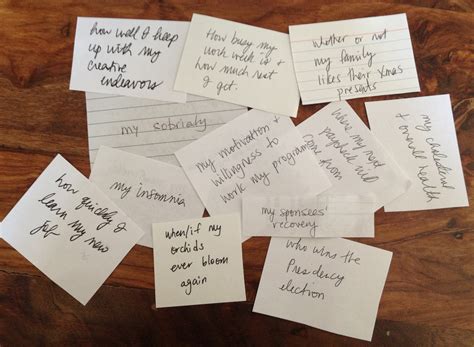 how well I keep
up with my
creative
endeavors
How busy my
work week is +
how much rest
I get.
whether or not
my family
likes their Xmas
presents
my sobriety
my motivation +
willingness to
work my program
where my next
paycheck will
come from
my cholesterol
+ overall health
my insomnia
how quickly I
learn my new
job
when/if my
orchids
ever bloom
again
my sponsees'
recovery
who wins the
Presidency
election